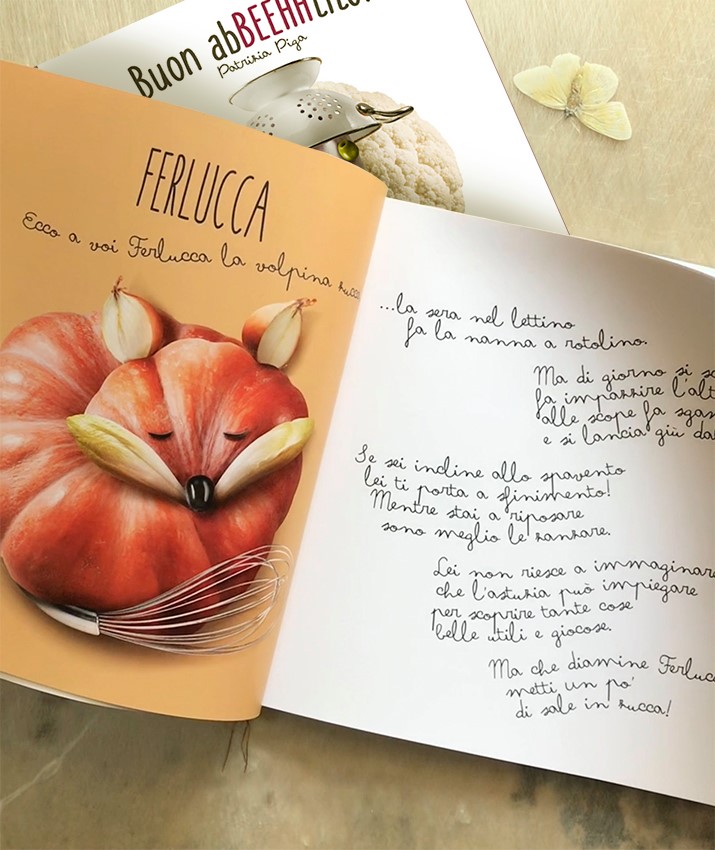 Buon abBEEHH
Patrizia Piga
FERLUCCA
Ecco a voi Ferlucca la volpina
...la sera nel lettino
fa la nanna a rotolino.
Ma di giorno si
fa impazzire
alle scope fa
e si lancia giù
Se sei incline allo spavento
lei ti porta a sfinimento!
Mentre stai a riposare
sono meglio le zanzare.
Lei non riesce a immaginare
che l'astuzia può impiegare
per scoprire tante cose
belle utili e giocose.
Ma che diamine
metti un po'
di sale in zucca!